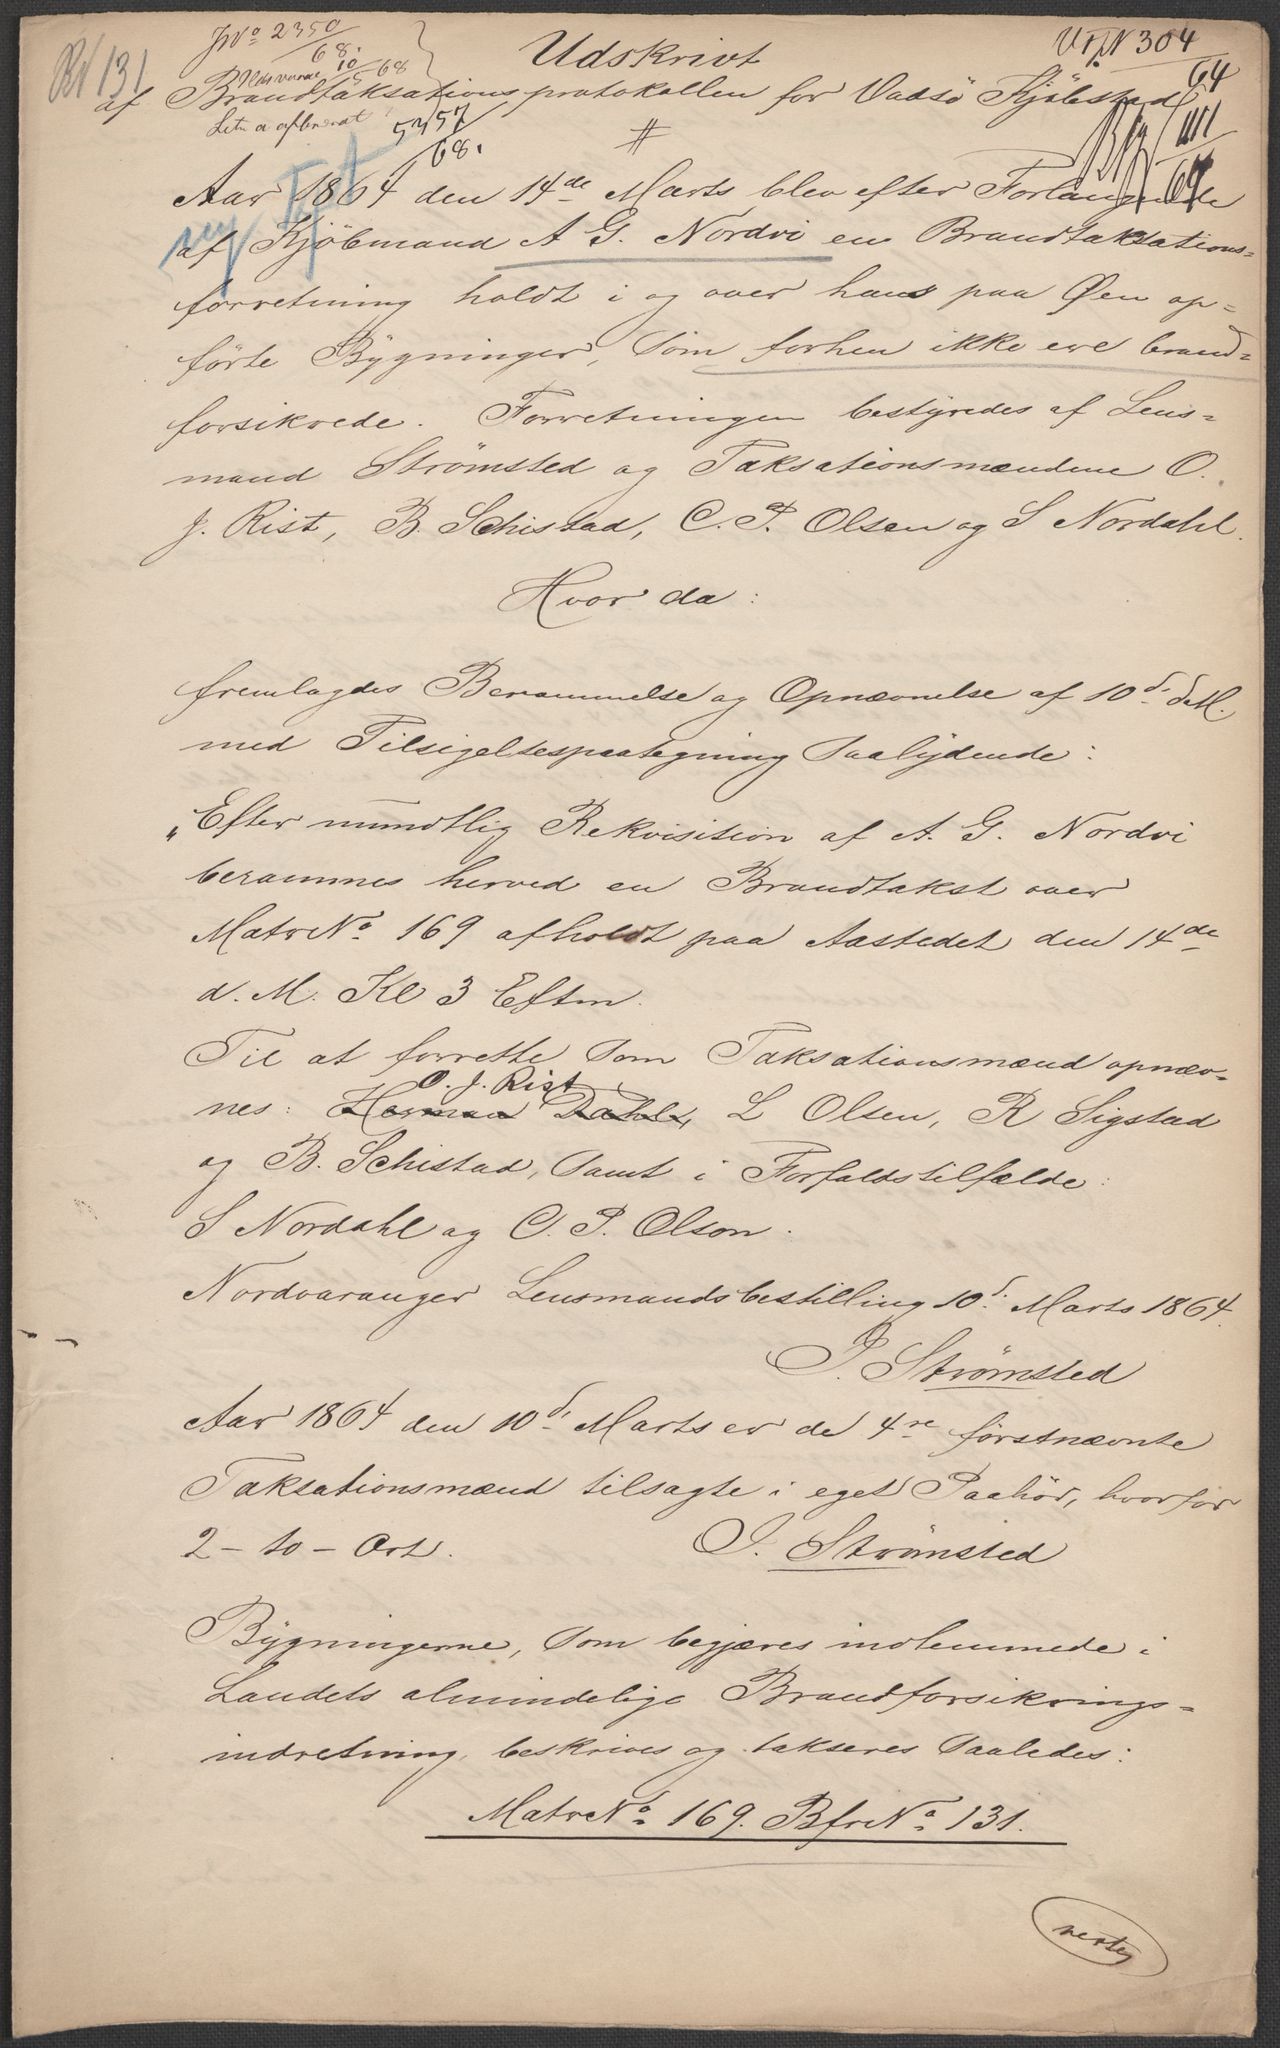 Bf 131
JNo 2350
68.
10/5 68
Vr.N 304
64
Udskrivt
af Brandtaksationsprotokollen for Vadsö Kjöbstad
5757
68.
1111
64
Aar 1864 den 14de Marts blev efter Forlangende
af Kjöbmand A G. Nordvi en Brandtaksations=
forretning holdt i og over hans paa Øen op=
förte Bygninger, som forhen ikke ere brand=
forsikrede. Forretningen bestyredes af Lens=
mand Strömsted og Taksationsmændene O.
J. Rist, B. Schistad, C. P. Olsen og S Nordahl.
Hvor da:
fremlagdes Berammelse og Opnævnelse af 10de d.M.
med Tilsigelsespaategning saalydende:
„Efter mundtlig Rekvisition af A. G. Nordvi
berammes herved en Brandtakst over
MatrNo 169 afholdt paa Aastedet den 14de
d. M. Kl 3 Eftm.
Til at forrette som Taksationsmænd opnæv=
O. J. Rist,
nes: Herman Dahl, L Olsen, R Sigstad
og B. Schistad, samt i Forfaldstilfælde:
S Nordahl og C. P. Olson.
Nordvaranger Lensmandsbestilling 10de Marts 1864.
P. Strömsted
Aar 1864 den 10de Marts er de 4re förstnævnte
Taksationsmænd tilsagte i eget Paahör, hvorfor
2 - to - Ort. P. Strömsted
Bygningerne, som begjæres indlemmede i
Landets almindelige Brandforsikrings=
indretning, beskrives og takseres saaledes:
MatrNo 169. BfrNo 131.
verte